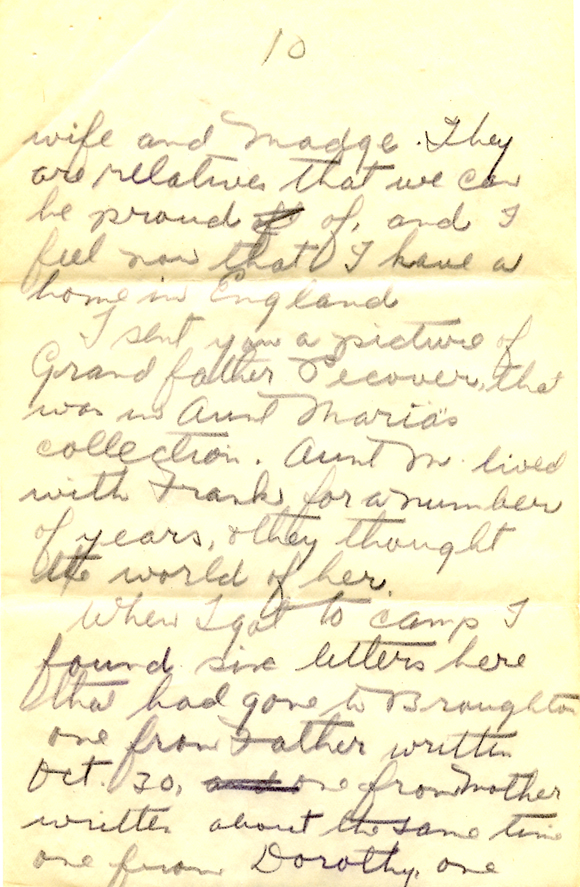 10
wife and Madge. They
are relatives that we can
be proud of, and I
feel now that I have a
home in England
I sent you a picture of
Grand father Pecover, that
was in Aunt Maria's
collection. Aunt M. lived
with Frank for a number
of years, & they thought
the world of her.
When I got to camp I
found six letters here
that had gone to Broughton
one from Father written
Oct. 30, and one from Mother
written about the same time
one from Dorothy, one